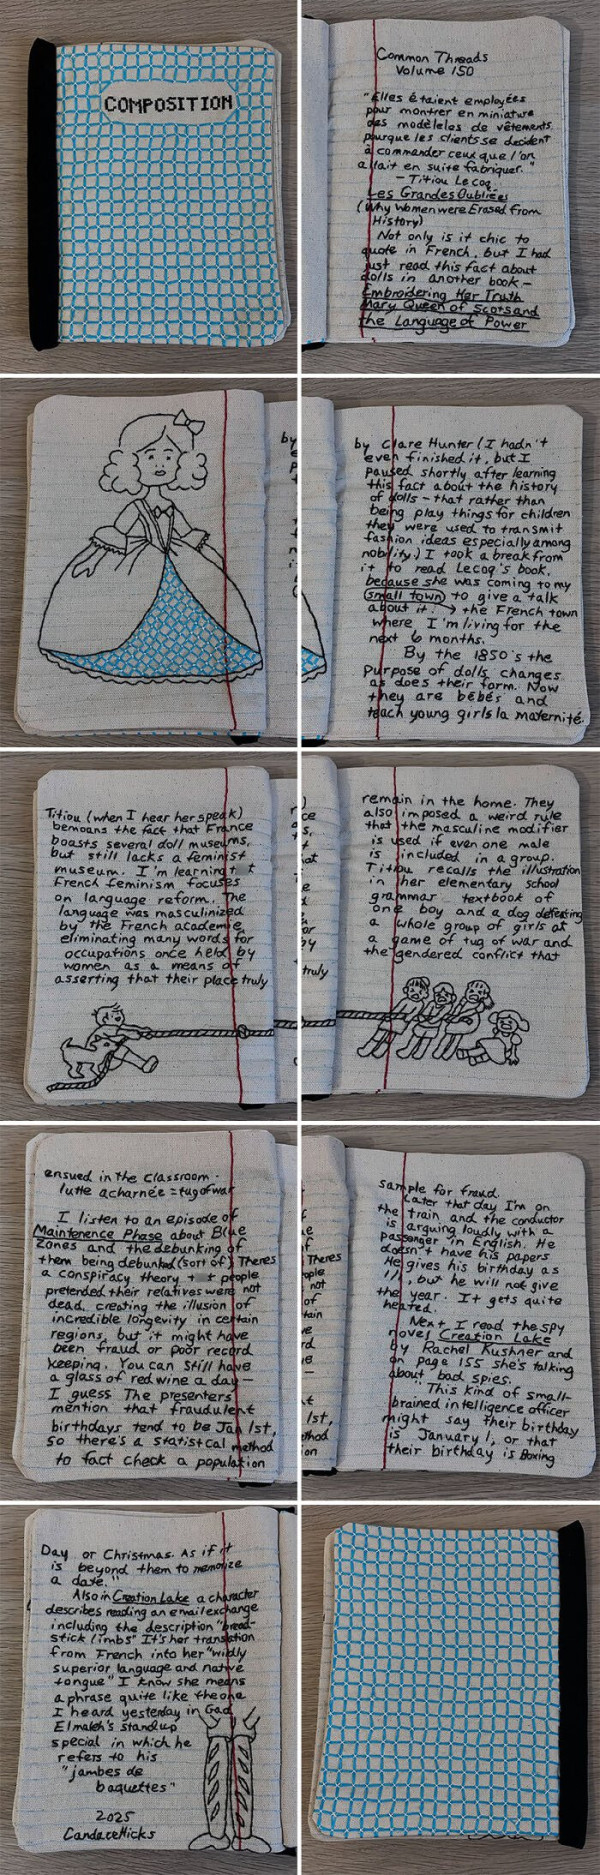 COMPOSITION
Common Threads
Volume 150
"Elles étaient employées
pour montrer en miniature
des modèleles de vêtements
pourque les clients se decident
à commander ceux que l'on
allait en suite fabriquer."
- Titiou Lecoq
Les Grandes Oubliées
(Why Women were Erased from
History)
Not only is it chic to
quote in French, but I had
just read this fact about
dolls in another book -
Embroidering Her Truth
Mary Queen of Scots and
the Language of Power
by Clare Hunter (I hadn't
even finished it, but I
paused shortly after learning
this fact about the history
of dolls - that rather than
being play things for children
they were used to transmit
fashion ideas especially among
nobility.) I took a break from
it to read Lecoq's book,
because she was coming to my
small town to give a talk
about it. → the French town
where I'm living for the
next 6 months.
By the 1850's the
purpose of dolls changes
as does their form. Now
they are bébés and
teach young girls la maternité.
Titiou (when I hear her speak)
bemoans the fact that France
boasts several doll museums,
but still lacks a feminist
museum. I'm learning t
French feminism focuses
on language reform. The
language was masculinized
by the French academie
eliminating many words for
occupations once held by
women as a means of
asserting that their place truly
remain in the home. They
also imposed a weird rule
that the masculine modifier
is used if even one male
is included in a group.
Titiou recalls the illustration
in her elementary school
grammar textbook of
one boy and a dog defeating
a whole group of girls at
a game of tug of war and
the gendered conflict that
ensued in the classroom.
lutte acharnée = tug of war
I listen to an episode of
Maintenence Phase about Blue
Zones and the debunking of
them being debunked (sort of) Theres
a conspiracy theory t t people
pretended their relatives were not
dead, creating the illusion of
incredible longevity in certain
regions, but it might have
been fraud or poor record
keeping. You can still have
a glass of red wine a day -
I guess The presenters
mention that fraudulent
birthdays tend to be Jan 1st,
so there's a statistical method
to fact check a population
sample for fraud.
Later that day I'm on
the train and the conductor
is arguing loudly with a
passenger in English. He
doesn't have his papers
He gives his birthday as
1/1, but he will not give
the year. It gets quite
heated.
Next I read the spy
novel Creation Lake
by Rachel Kushner and
on page 155 she's talking
about bad spies.
"This kind of small-
brained intelligence officer
might say their birthday
is January 1, or that
their birthday is Boxing
Day or Christmas. As if it
is beyond them to memorize
a date."
Also in Creation Lake a character
describes reading an email exchange
including the description "bread-
stick limbs" It's her translation
from French into her "wildly
superior language and native
tongue" I know she means
a phrase quite like the one
I heard yesterday in Gad
Elmaleh's standup
special in which he
refers to his
"jambes de
baquettes"
2025
Candace Hicks